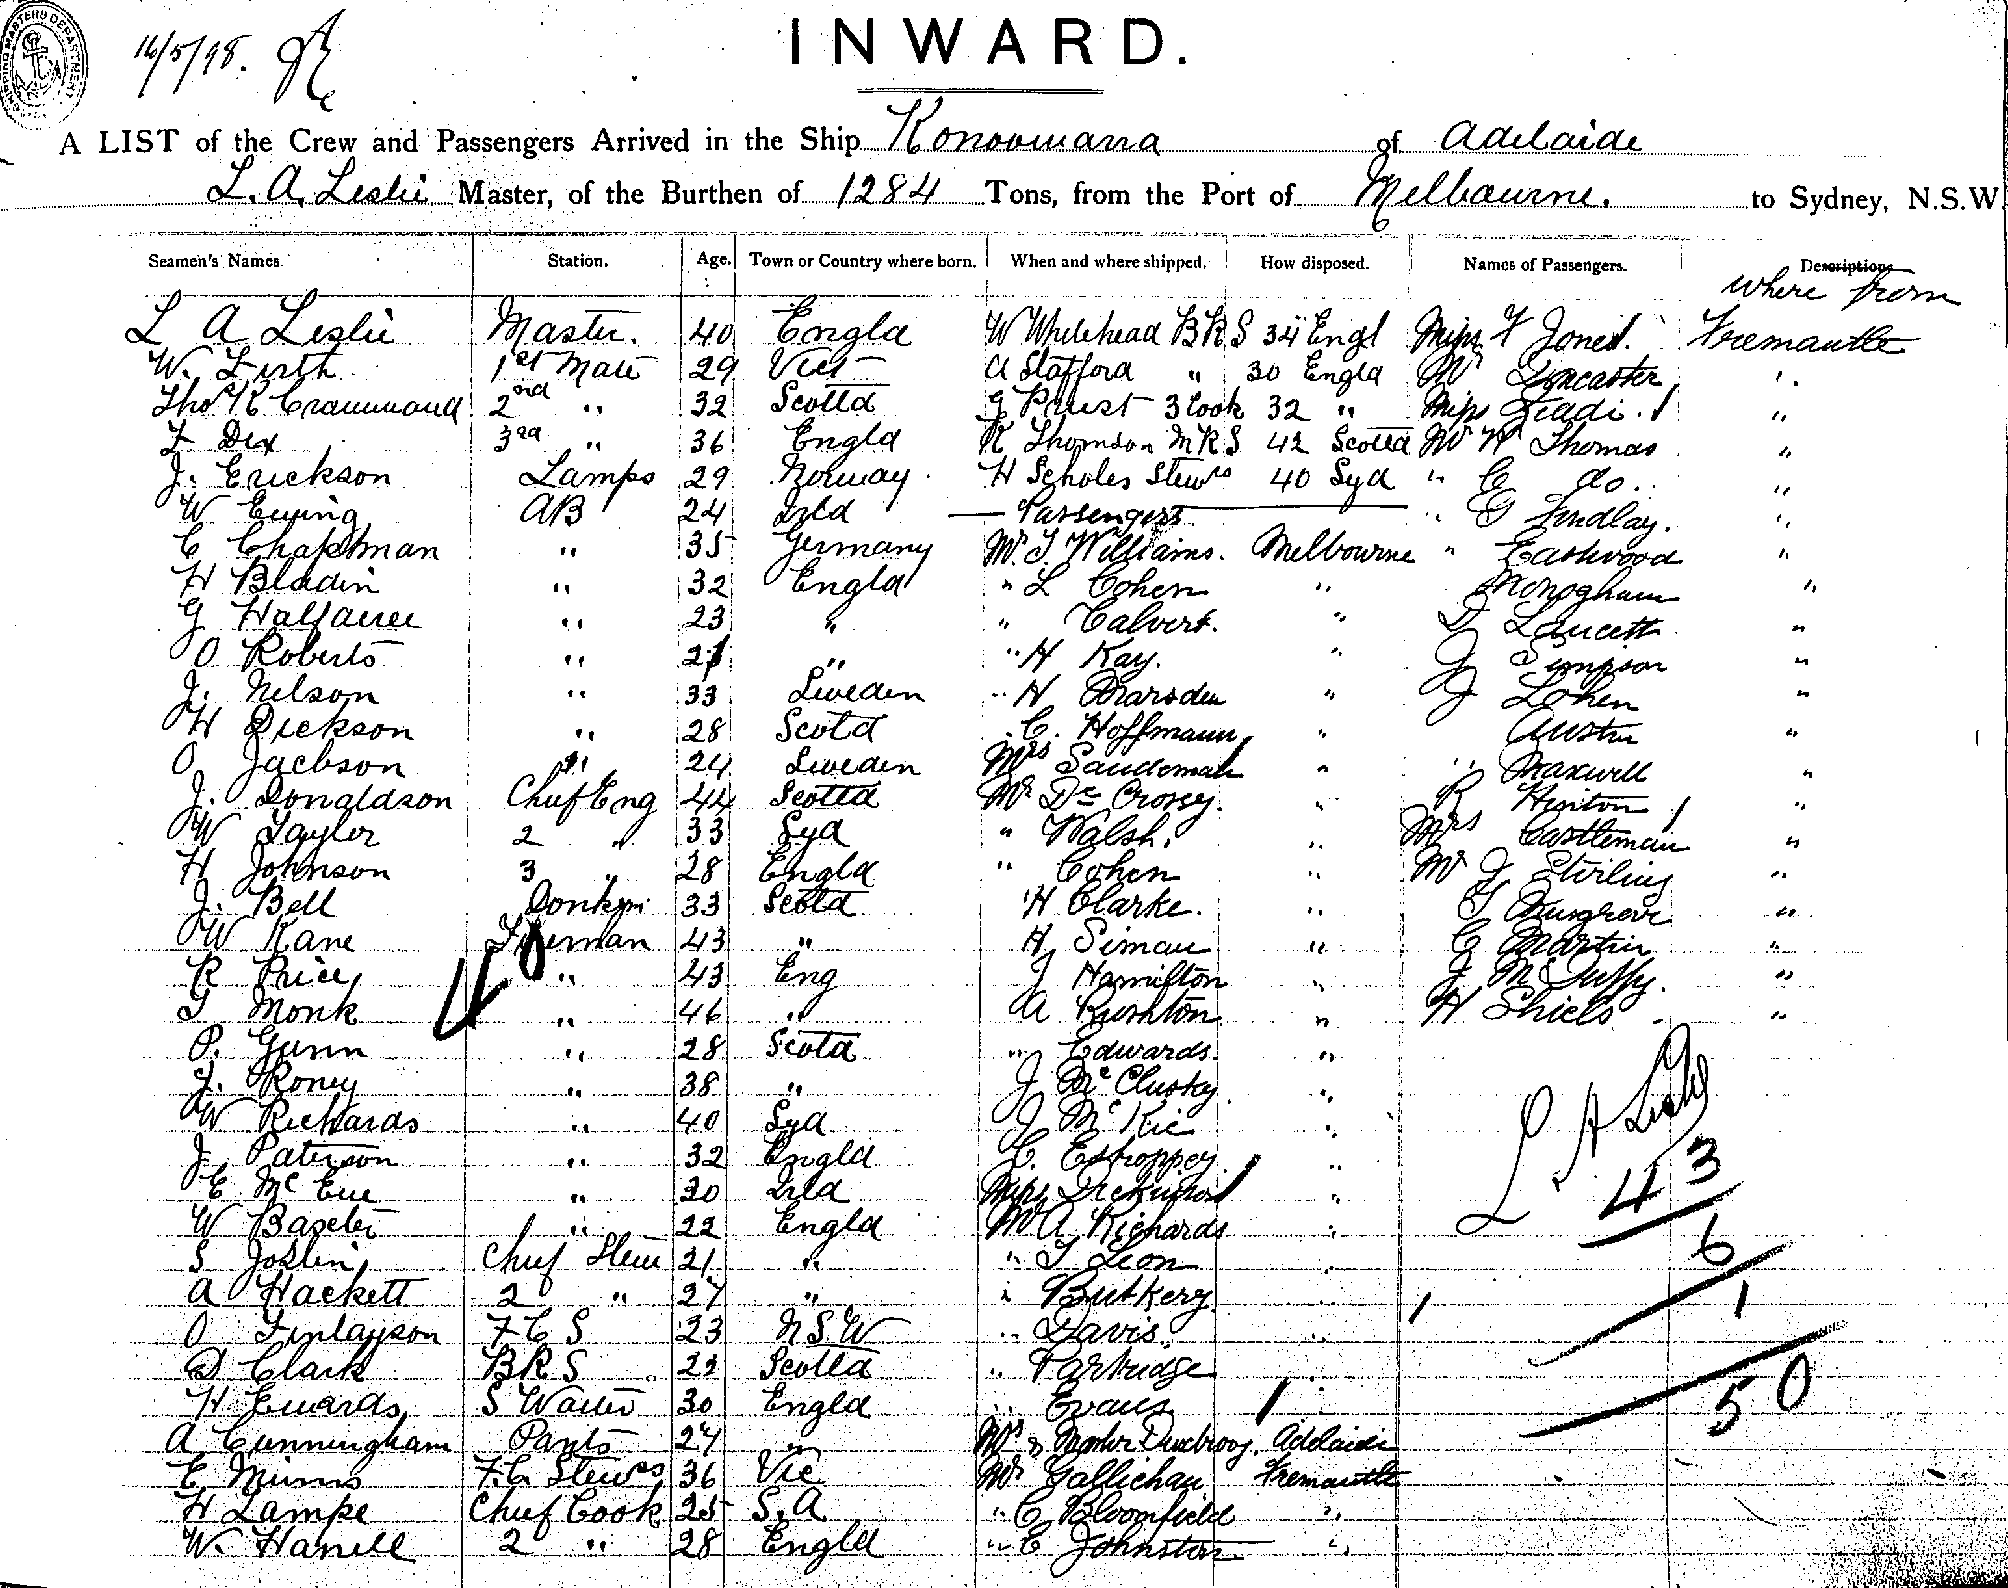 16/5/98.
INWARD.
A LIST of the Crew and Passengers Arrived in the Ship Konoowarra of Adelaide
L. A. Leslie Master, of the Burthen of 1284 Tons, from the Port of Melbourne. to Sydney, N.S.W.
Seamen's Names Station. Age. Town or Country where born. When and where shipped. How disposed. Names of Passengers. Descriptions
where from
L A Leslie Master. 40 Engld W Whitehead B R S 34 Engl Miss F Jones. Fremantle
W. Firth 1st Mate 29 Vict A Stafford " 30 Engld Mr Lancaster "
Thos R Crammond 2nd " 32 Scotld G Priest 3 Cook 32 " Miss Leadi. "
F Dix 3rd " 36 Engld R Thomson M R S 42 Scotld Mr W Thomas "
J. Erickson Lamps 29 Norway. H Scholes Stewss 40 Syd " C do. "
W Ewing AB 24 Irld Passengers " G Findlay. "
C Chapman " 35 Germany Mr. T. Williams. Melbourne " Eastwood "
H Bladin " 32 Engld " L Cohen " Monogham "
G " 23 " " Calvert. " D Faucett "
O Roberts " 21 " " H Kay. " J Simpson "
J. Nelson " 33 Sweden " H Marsden " J Cohen "
H Dickson " 28 Scotd C. Hoffmann " Austin "
O Jacbson " 24 Sweden Mrs Sandeman " " Maxwell "
J. Donaldson Chief Eng 44 Scotld Mr De Crosey. " R Hinton "
W Tayler 2 " 33 Syd " Walsh. " Mrs Castlemain "
H Johnson 3 " 28 Engld " Cohen " Mr J Stirling "
J. Bell Donkyn 33 Scotd H Clarke. " T Musgrove "
W Kane Fireman 43 " H Simau " C Martin "
R Price " 43 Eng J Hamilton " J McDuffy. "
T Monk " 46 " A Rushton " H Shiels "
P. Gunn " 28 Scotd " Edwards. "
J. Roney " 38 " J McClusky "
W Richards " 40 Syd J McKie "
J. Paterson " 32 Engld C. Estroppey "
E McEue " 30 Irld Miss Dickinson "
W Baxter " 22 Engld Mr A Richards "
S Joslin Chief Stew 21 " " T Leon "
A Hackett 2 " 27 " " Butkery "
O Finlayson F C S 23 N S W " Davis. "
D Clark B R S 22 Scotld " Partridge
H Ewards S Waiter 30 Engld " Evans
A Cunningham Pants 27 " Mrs & Adelaide
E Mimms F.C. Stewss 36 Vic Mr Gallichan Fremantle
H Lampe Chief Cook 25 S. A " C Bloomfield "
W. Harrell 2 " 28 Engld " E Johnston "
L A Leslie
43
6
1
50